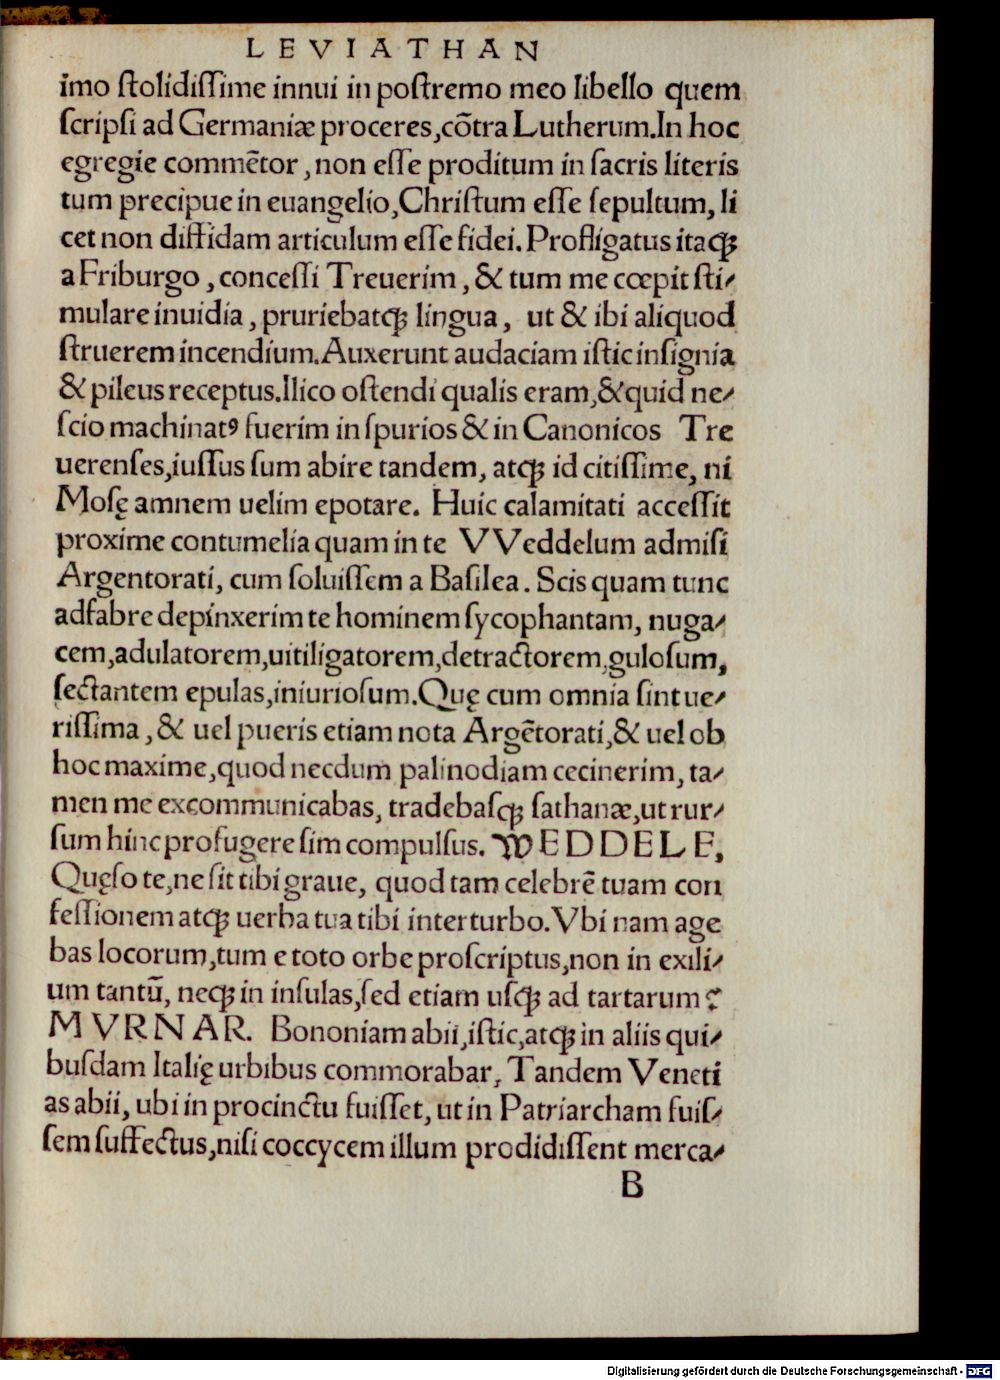 LEVIATHAN
imo ſtolidiſſime innui in poſtremo meo libello quem
ſcripſi ad Germaniæ proceres,cõtra Lutherum.In hoc
egregie commẽtor, non eſſe proditum in ſacris literis
tum precipue in euangelio,Chriſtum eſſe ſepultum, li
cet non diffidam articulum eſſe fidei. Profligatus itaqꝫ
a Friburgo, conceſſi Treuerim, & tum me cœpit ſti⸗
mulare inuidia, pruriebatqꝫ lingua, ut & ibi aliquod
ſtruerem incendium.Auxerunt audaciam iſtic inſignia
& pileus receptus.Ilico oſtendi qualis eram,& quid ne⸗
ſcio machinatꝰ fuerim in ſpurios & in Canonicos Tre
uerenſes,iuſſus ſum abire tandem, atqꝫ id citiſſime, ni
Moſę amnem uelim epotare. Huic calamitati acceſſit
proxime contumelia quam in te VVeddelum admiſi
Argentorati, cum ſoluiſſem a Baſilea. Scis quam tunc
adfabre depinxerim te hominem ſycophantam, nuga⸗
cem,adulatorem,uitiligatorem,detractorem,guloſum,
ſectantem epulas,iniurioſum.Quę cum omnia ſint ue⸗
riſſima, & uel pueris etiam nota Argẽtorati,& uel ob
hoc maxime,quod necdum palinodiam cecinerim, ta⸗
men me excommunicabas, tradebaſqꝫ ſathanæ,ut rur⸗
ſum hinc profugere ſim compulſus. WEDDELE,
Quęſo te,ne ſit tibi graue, quod tam celebrẽ tuam con
feſſionem atqꝫ uerba tua tibi interturbo.Vbi nam age
bas locorum,tum e toto orbe proſcriptus,non in exili⸗
um tantũ, neqꝫ in inſulas,ſed etiam uſqꝫ ad tartarum?
MVRNAR. Bononiam abii,iſtic,atqꝫ in aliis qui⸗
buſdam Italię urbibus commorabar, Tandem Veneti
as abii, ubi in procinctu fuiſſet, ut in Patriarcham fuiſ⸗
ſem ſuffectus,niſi coccycem illum prodidiſſent merca⸗
B
Digitalisierung gefördert durch die Deutsche Forschungsgemeinschaft - DFG